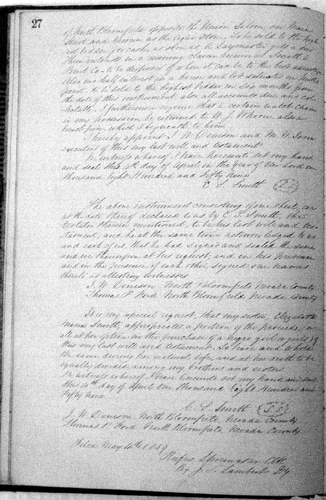 27
of North Bloomfield opposite the Union Saloon, on Main
Street and known as the Cigar Store. To be sold to the high
est bidder for cash as soon as
then interest in a
be disposed of when it can to the best advantage
Also one half interest in a house and lot situated on
to be sold to the highest bidder in six months from
the date of this instrument, also all accounts due and col
lectable. I furthermore require that a certain watch chain
in my possession be returned to W. J.
which I bequeath to him.
I hereby appoint J. W. Denison and
executors of this my last will and testament.
In witness whereof I have hereunto set my hand
and seal this 5th day of April in the year of our Lord one
thousand Eight Hundred and Fifty nine
C. S. Smith
The above instrument consisting of one sheet, was
at the date thereof declared to us by C. S. Smith, the
testator therein mentioned, to be his last will and tes
tament, and he at the same time acknowledged to us
and each of us, that he had signed and sealed the same
and we thereupon at his request, and in his presence
and in the presence of each other, signed our names
thereto as attesting witnesses
J. W. Denison North Bloomfield Nevada County
Thomas P. Ford North Bloomfield Nevada County
It is my special request, that my sister Elizabeth
Maria Smith, appropriate a portion of the proceeds,
at her option in the purchase of a
this my last will and testament, to have and to hold
the same during her natural life, and at her death to be
equally divided among my brothers and sisters
In witness whereof I have hereunto set my hand and seal
this 5th day of April One thousand Eight Hundred and
Fifty nine.
C. S. Smith
J. W. Denison North Bloomfield Nevada County
Thomas P. Ford North Bloomfield Nevada County
Filed May 1859
Rufus Shoemaker Clk
By J. S. Lambert Dy